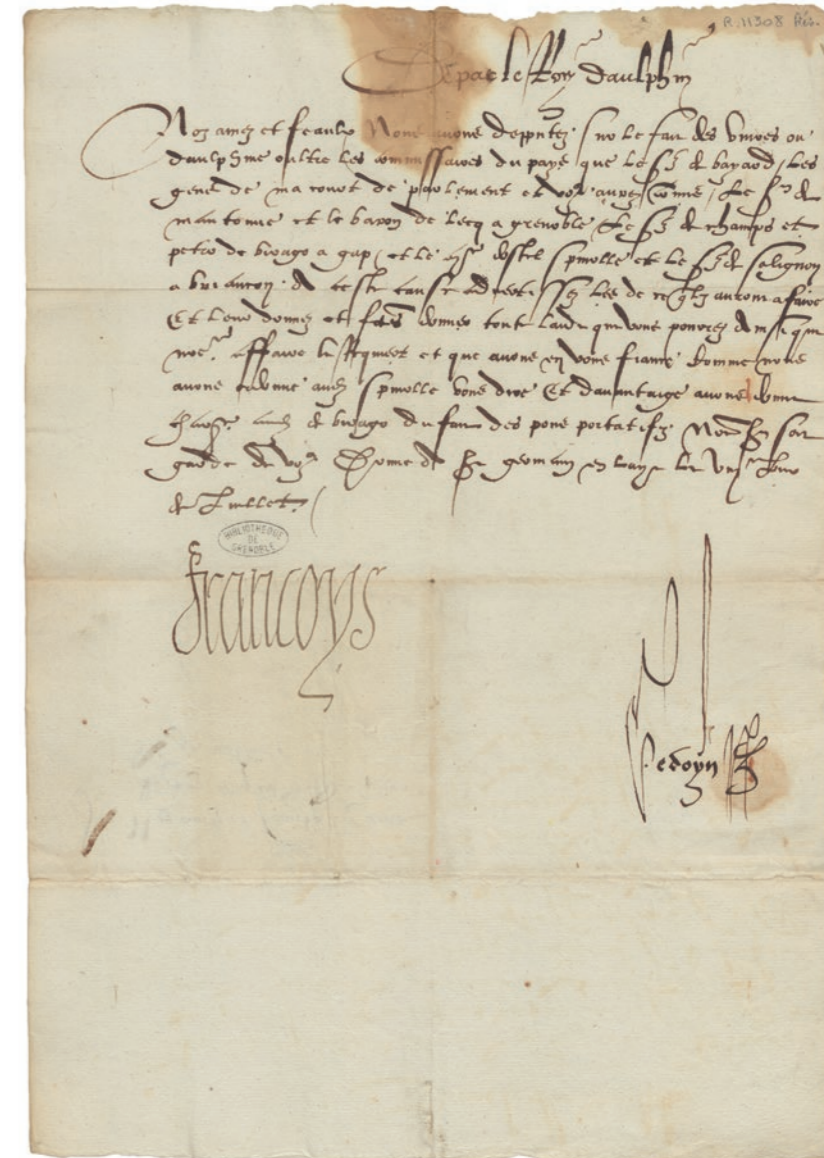 R. 11308 Rés.
De par le Roy daulphin
Noz amez et feaulx Nous avons depputez sur le fait des vivres ou
daulphine oultre les commissaires du pays que le sr de bayard, les
gens de ma court de parlement et vous aurez comis, Le sr de
et le baron de Lecq a grenoble Le sr de champs et
petro de birago a gap, et le cappne spinolle et le sr de salignon
a briancon. de ceste cause advertissez les de ce quilz auront a faire
Et leur donnez et faictes donner tout laide que vous pourrez
affaire le Requiert et que avons en vous fiance Comme nous
avons ordonne audit spinolle vous dire Et davantaige avons donne
charge audit de birago du fait des pons portatifz
garde de vous Donne a St germain en laye le jour
de Juillet.
BIBLIOTHEQUE
DE
GRENOBLE
Francoys
Gedoyn